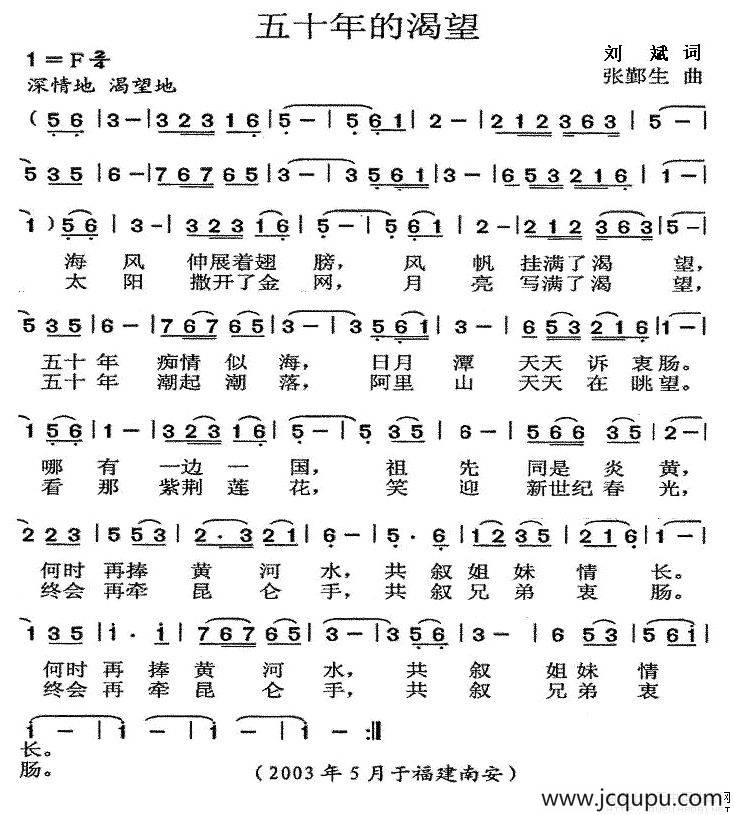 五十年的渴望
1=F 2/4
刘 斌 词
深情地 渴望地
张鄞生 曲
(56|3-|32316|5-|561|2-|212363|5-|
535|6-|76765|3-|3561|3-|6532161|1-|
1)56|3-|32316|5-|561|2-|212363|5-|
海 风 伸展着翅 膀， 风 帆 挂满了渴 望，
太 阳 撒开了金 网， 月 亮 写满了渴 望，
535|6-|76765|3-|3561|3-|653216|1-|
五十年 痴情似海， 日月潭 天天诉衷肠。
五十年 潮起潮落， 阿里山 天天在眺望。
156|1-|32316|5-|535|6-|56635|2-|
哪 有 一边一 国， 祖 先 同是炎黄，
看 那 紫荆莲 花， 笑 迎 新世纪春光，
223|553|2·321|6-|5·6|1235|1-|1-|
何时再捧 黄 河 水， 共 叙姐妹情 长。
终会再牵 昆 仑 手， 共 叙兄弟衷 肠。
135|1·1|76765|3-|356|3-|653|561|
何时再捧黄 河 水， 共 叙 姐妹 情
终会再牵昆 仑 手， 共 叙 兄弟 衷
1-|1-|1-|1-:||
长。
肠。
(2003年5月于福建南安)
www.jcqupu.com